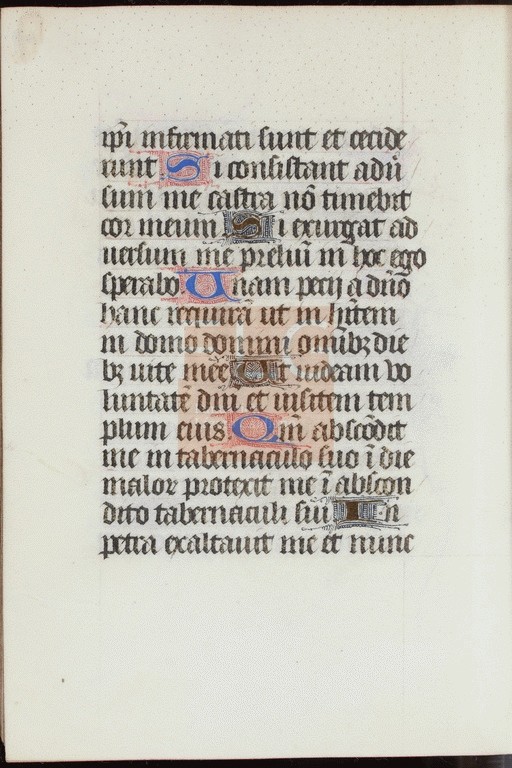 ip̄i infirmati sunt et cecide
runt Si consistant adū
sum me castra nō timebit
cor meum Si exurgat ad
uersum me preliū in hoc ego
sperabo Unam petij a dn̄o
hanc requirā ut in hītem
in domo domini omībꝫ die
bꝫ uite mēe Ut uideam vo
luntatē dn̄i et uisitem tem
plum eius Qm̄ abscōdit
me in tabernaculo suo ī die
malor protexit me ī abscon
dito tabernaculi sui In
petra exaltauit me et nunc